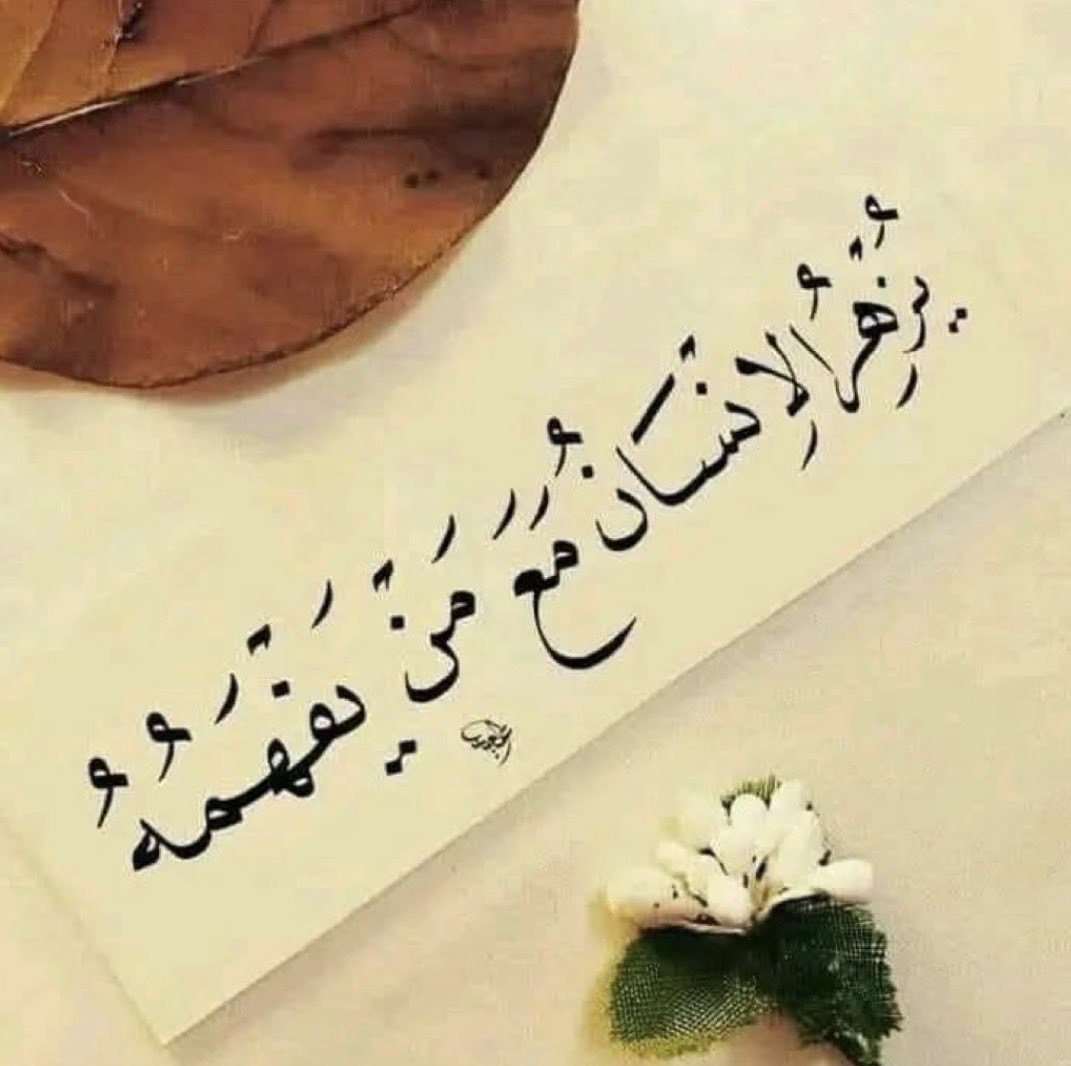 يُزْهِرُ الإِنْسَانُ مَعَ مَنْ يَفْهَمُهُ